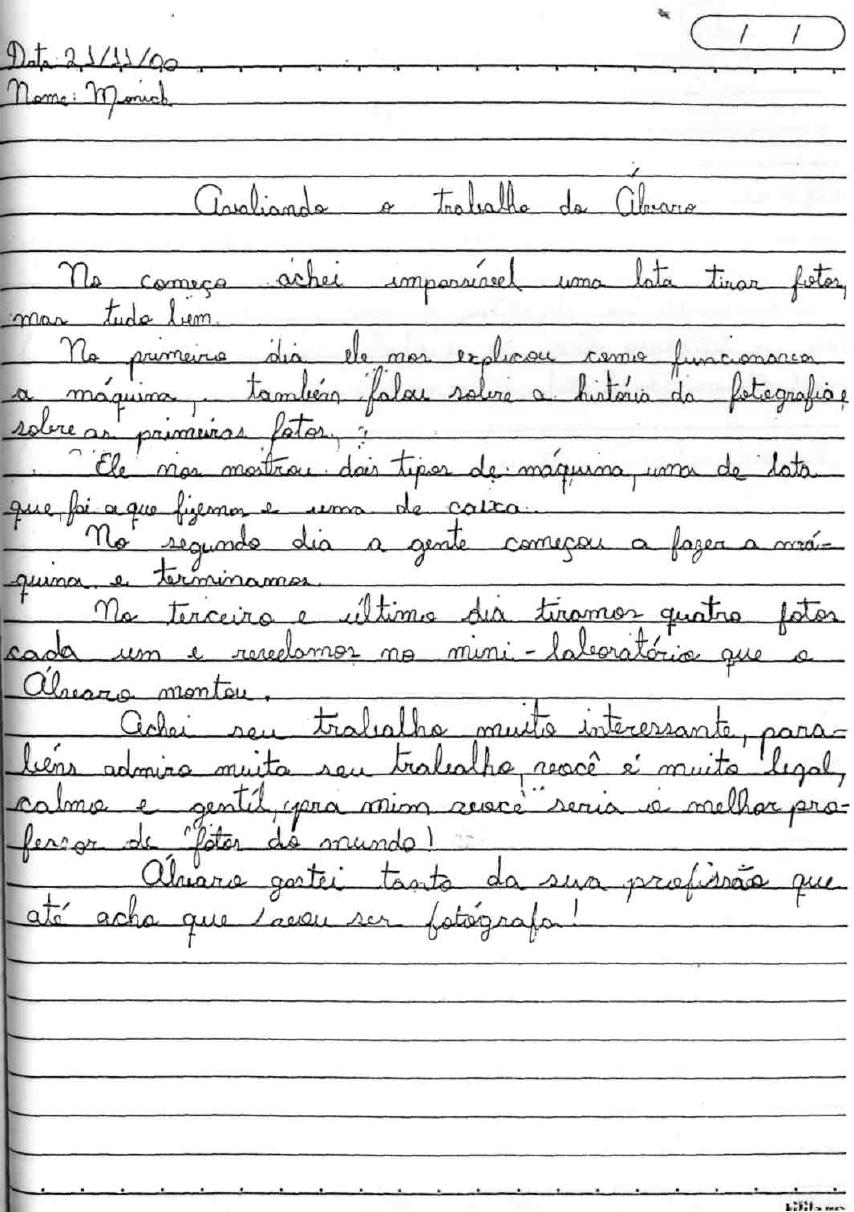 / /
Data: 21/11/00
Nome: Monich
Avaliando o trabalho do Álvaro
No começo achei impossível uma lata tirar fotos,
mas tudo bem.
No primeiro dia ele nos explicou como funcionava
a máquina, também falou sobre a história da fotografia e
sobre as primeiras fotos,
Ele nos mostrou dois tipos de máquina, uma de lata
que foi a que fizemos e uma de caixa.
No segundo dia a gente começou a fazer a má-
quina e terminamos.
No terceiro e último dia tiramos quatro fotos
cada um e revelamos no mini-laboratório que o
Álvaro montou.
Achei seu trabalho muito interessante, para-
béns admiro muito seu trabalho, você é muito legal,
calmo e gentil, pra mim você seria o melhor pro-
fessor de fotos do mundo!
Álvaro gostei tanto da sua profissão que
até acho que vou ser fotógrafa!